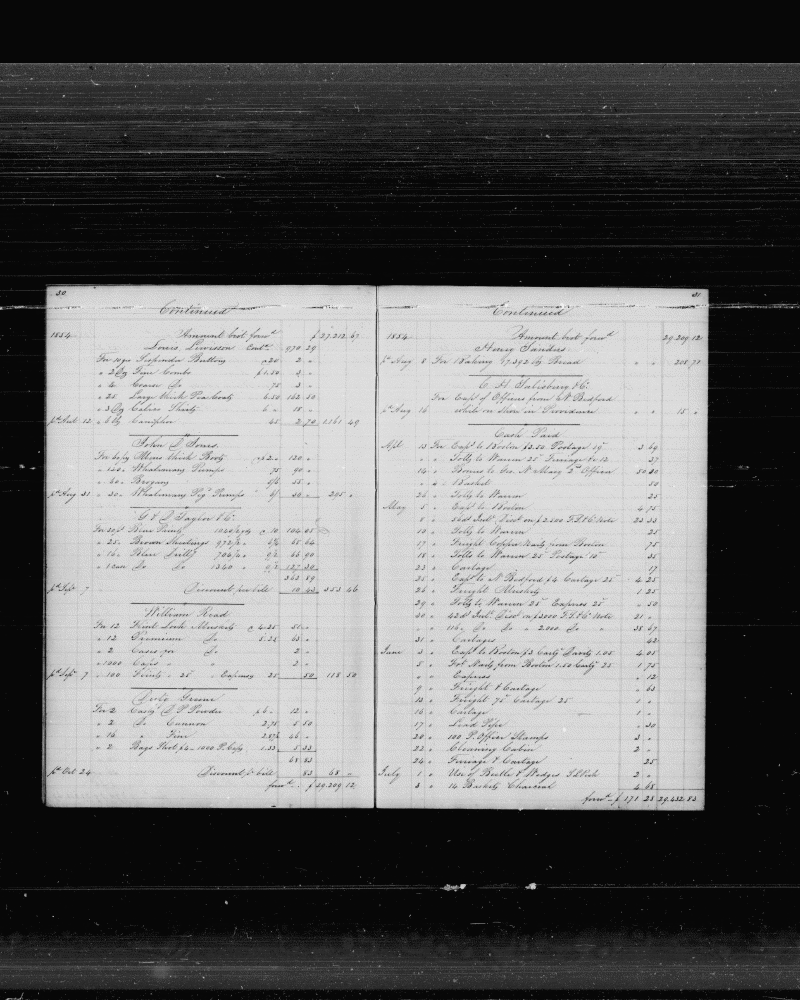 30
Continued
1854 Amount brot forwd $ 27,212 67
Louis Lewisson Contd 970 29
For 10 gro Suspender Buttons @ 20 2 "
" 2 Dz Fine Combs $1.50 3 "
" 4 " Coarse Do 75 3 "
" 25 Large thick Pea Coats 6.50 162 50
" 3 Dz Calico Shirts 6 " 18 "
12 " 6 lb Camphor 45 2 70 1,161 49
John D Jones
For 60 pr Mens thick Boots @ $2 " 120 "
" 120 " Whalemans Pumps 75 90 "
" 60 " Brogans 55 "
pd Aug 31 " 30 " Whalemans Pegd Pumps 6/ 30 " 295 "
G & D Taylor & Co
For 20 ps Blue Prints @ 10 104 05
" 25 " Brown Sheetings 972 65 64
" 16 " Blue Drills 66 90
" 1 Do Do 1340 " 127 30
363 89
pd Sept 7 Discount per bill 10 43 353 46
William Read
For 12 Flint Lock Muskets @ 4.25 51 "
" 12 Premium Do 5.25 63 "
" 2 Cases for Do 2 "
" 1000 Caps " " 2 "
pd Sept 7 " 100 Flints " 25 Expenses 25 " 50 118 50
Greene
For 2 Casks D P Powder $6 " 12 "
" 2 Do Cannon 2.75 5 50
" 16 " Fine 2.87½ 46 "
" 2 Bags Shot $4 " 1000 P. Caps 1.33 5 33
68 83
pd Oct 24 Discount pr bill 83 68 "
forwd $ 29,209 12
31
Continued
1854 Amount brot forwd 29,209 12
Henry Sanders
pd Aug 8 For Baking 47,392 lbs Bread " " 208 73
C A Salisbury & Co
For Exps of Officers from N Bedford
pd Aug 16 while on Shore in Providence " " 15 "
Cash Paid
Apl 13 For Expd to Boston $3.50 Postage 19 3 69
" " Tolls to Warren 25 Ferriage &c 12 37
14 " Bonus to Geo. N Macy 2d Officer 50 30
" " Basket 50
26 " Tolls to Warren 25
May 5 " Expd to Boston 4 75
8 " Disct on $2,500 Note 23 33
10 " Tolls to Warren 25
17 " Freight Copper Nails from Boston 75
18 " Tolls to Warren 25 Postage 10 35
23 " Cartage 17
25 " Expd to N Bedford $4 Cartage 25 4 25
26 " Freight Whiskets 1 25
29 " Tolls to Warren 25 Express 25 " 50
30 " Disct on $3000 Note 21 "
" " Do Do " 2000 Do 38 67
31 " Cartages 42
June 3 " Expd to Boston $3 1.05 4 05
5 " Frt Nails from Boston 1.50 Cartg 25 1 75
" " Express " 12
9 " Freight & Cartage " 63
13 " Freight 75 Cartage 25 1 "
16 " Cartage 1 "
17 " Lead Pipe " 30
20 " 100 P. Office Stamps 3 "
22 " Cleaning Cabin 2 "
24 " Ferriage & Cartage 25
July 1 " Use of Beetle & Wedges 2 "
3 " 14 Baskets Charcoal 4 68
forwd $ 171 28 29,432 85